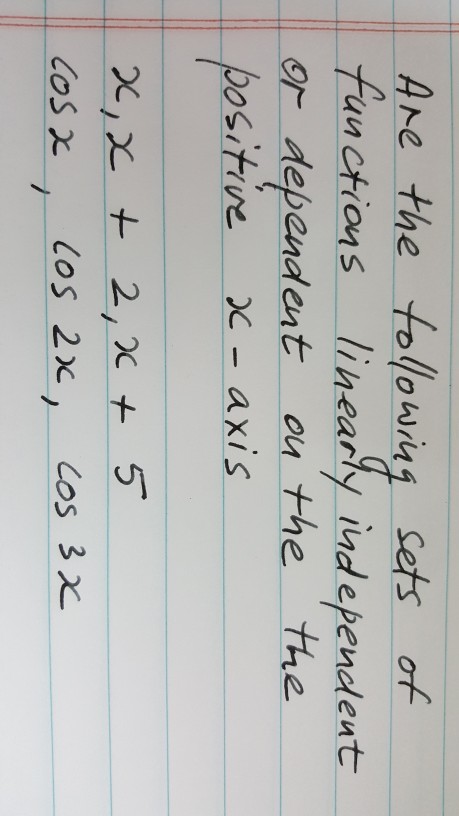 Are the following sets of
functions linearly independent
or dependent on the the
positive x-axis
x, x + 2, x + 5
cos x, cos 2x, cos 3x